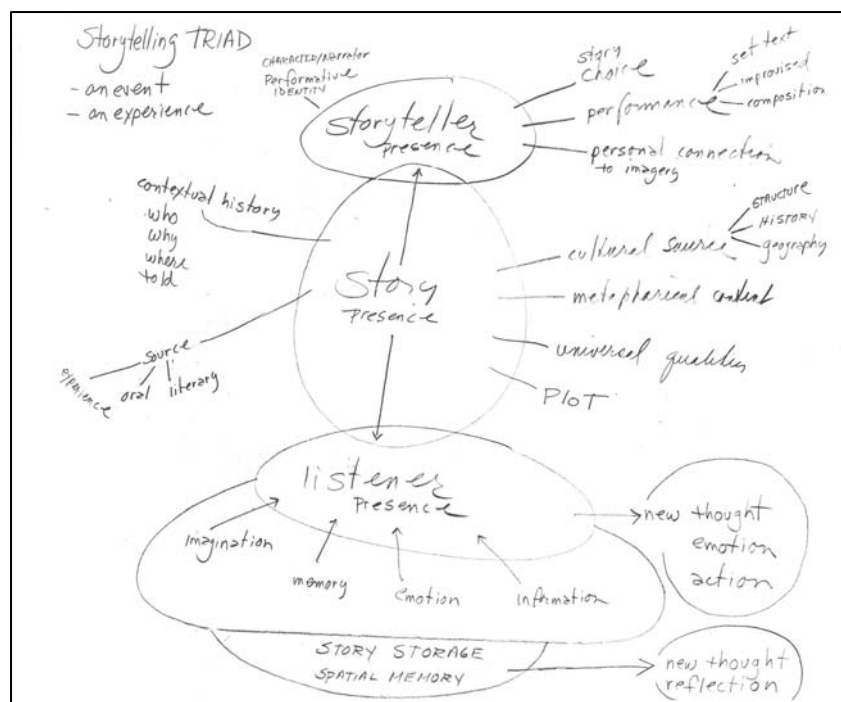 Storytelling TRIAD
- an event
- an experience
CHARACTER/Narrator
Performative
IDENTITY
Storyteller
presence
story
choice
performance
set text
improvised
composition
personal connection
to imagery
contextual history
who
why
where
told
Story
PRESENCE
cultural source
STRUCTURE
HISTORY
geography
metaphorical content
universal qualities
PLOT
source
experience
oral
literary
listener
PRESENCE
imagination
memory
emotion
information
new thought
emotion
action
STORY STORAGE
SPATIAL MEMORY
new thought
reflection